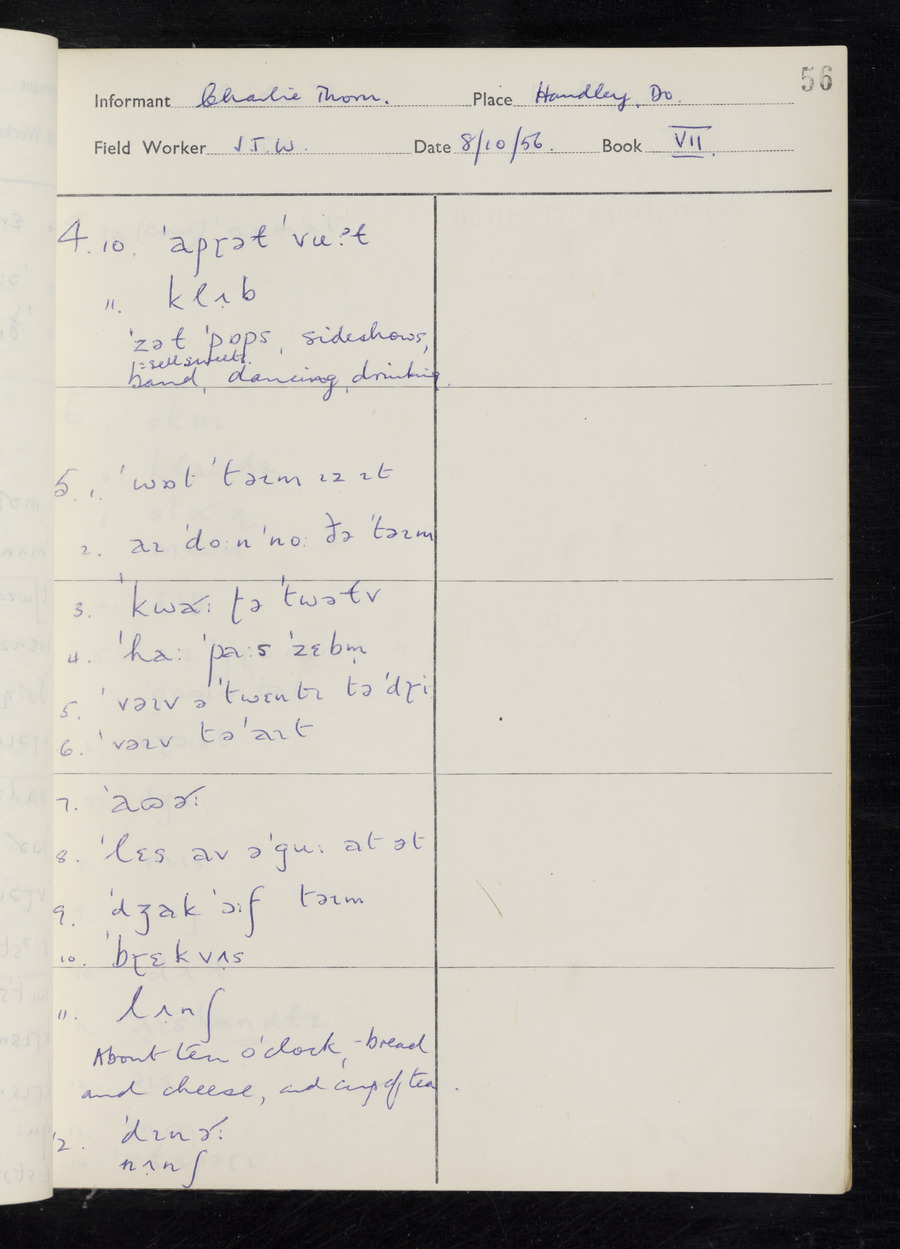 56
Informant Charlie Thorn. Place Handley, Do.
Field Worker J.T.W. Date 8/10/56. Book VII.
4. 10. ˈapɽət ˈvɪːʔt
11. klʌb
ˈzət ˈpɒps, sideshows,
[= sell sweets.
band, dancing, drinking.
5. 1. ˈwɒt ˈtəɪm ɪz ɪt
2. aɪ ˈdoːn ˈnoː ðə ˈtəɪm
3. ˈkwɚː ʈə ˈtwəɫv
4. ˈhaː ˈpaːs ˈzɛbm̩
5. ˈvəɪv ə ˈtwɛntɪ tə ˈdɽiː
6. ˈvəɪv tə ˈaɪt
7. ˈaʊɚː
8. ˈlɛs av ə ˈguː at ət
9. ˈdʒak ˈɔːf təɪm
10. ˈbɽɛkvʌs
11. lʌnʃ
About ten o'clock, - bread
and cheese, and cup of tea.
12. ˈdɪnɚː
nʌnʃ